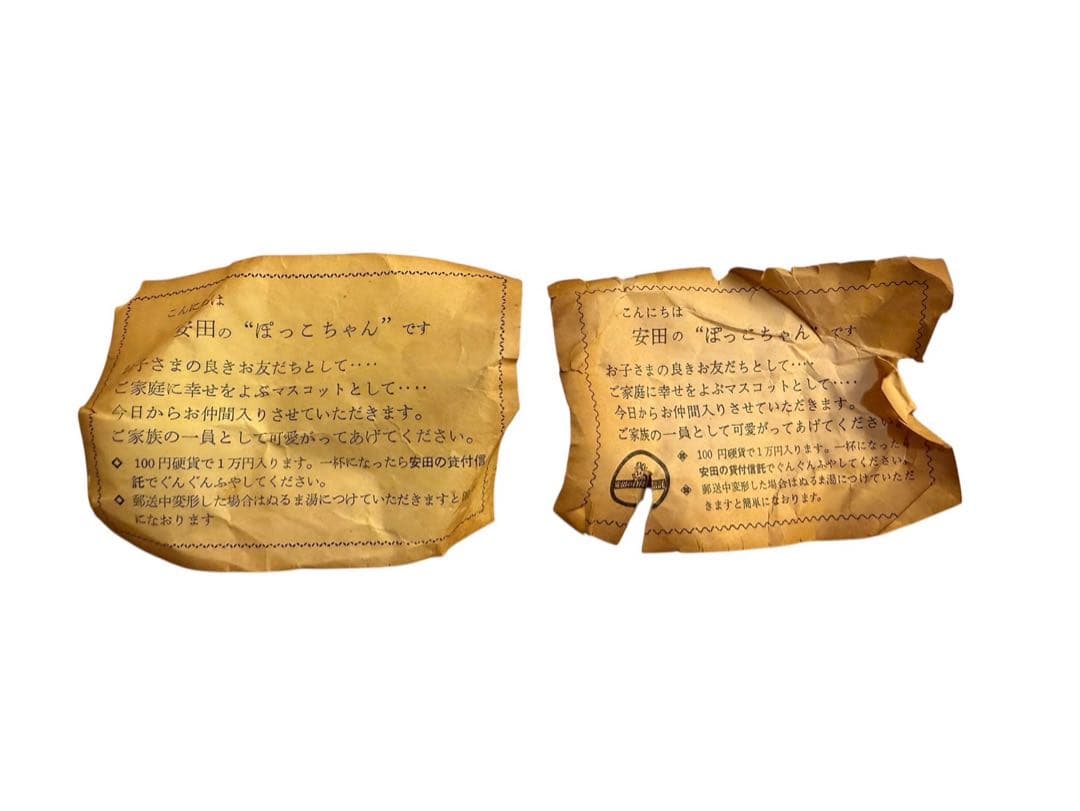 こんにちは
安田の“ぽっこちゃん”です
お子さまの良きお友だちとして‥‥
ご家庭に幸せをよぶマスコットとして‥‥
今日からお仲間入りさせていただきます。
ご家族の一員として可愛がってあげてください。
◇ 100円硬貨で1万円入ります。一杯になったら安田の貸付信
託でぐんぐんふやしてください。
◇ 郵送中変形した場合はぬるま湯につけていただきますと
になおります
こんにちは
安田の“ぽっこちゃん”です
お子さまの良きお友だちとして‥‥
ご家庭に幸せをよぶマスコットとして‥‥
今日からお仲間入りさせていただきます。
ご家族の一員として可愛がってあげてください
※ 100円硬貨で1万円入ります。一杯になった
安田の貸付信託でぐんぐんふやしてください。
※ 郵送中変形した場合はぬるま湯につけていただ
きますと簡単になおります。